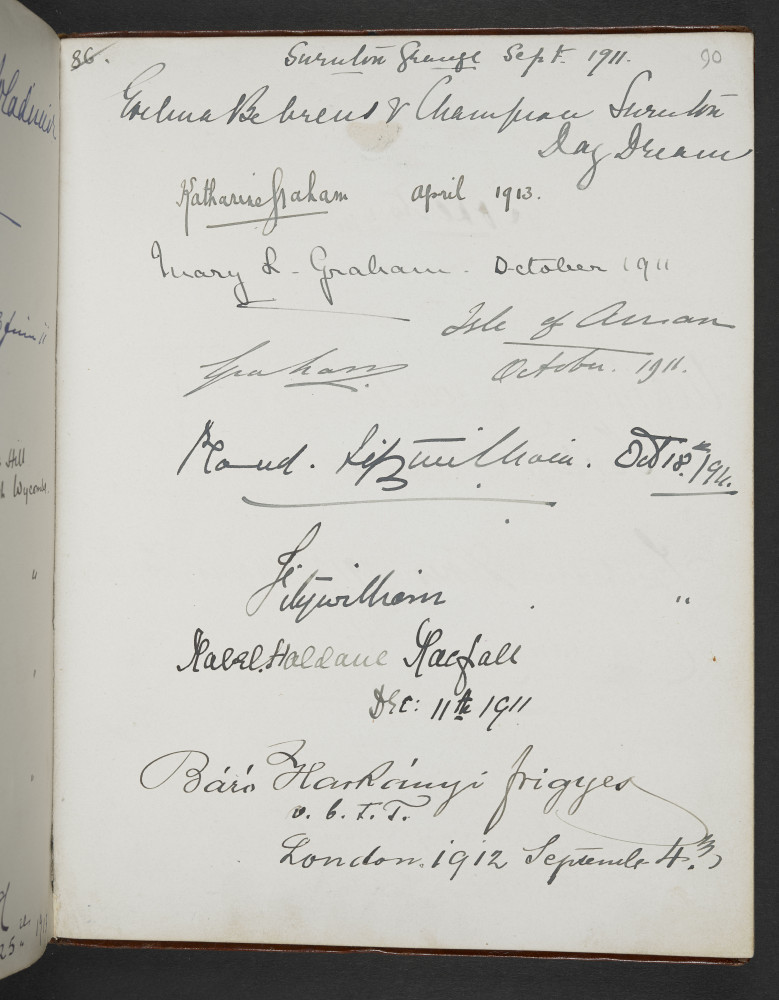 86.
90
Swinton Grange Sept. 1911.
Evelina Behrens & Champion Swinton
Day Dream
Katharine Graham april 1913.
Mary L. Graham. October 1911
Isle of Arran
Graham October. 1911.
Maud. Fitzwilliam. Oct 18th/911.
Fitzwilliam "
Mabel. Haldane Macfall
Dec: 11th 1911
Báró Harkányi Frigyes
v. b. t. t.
London. 1912 Septembe 4.
Hill
h Wycombe.
"
25